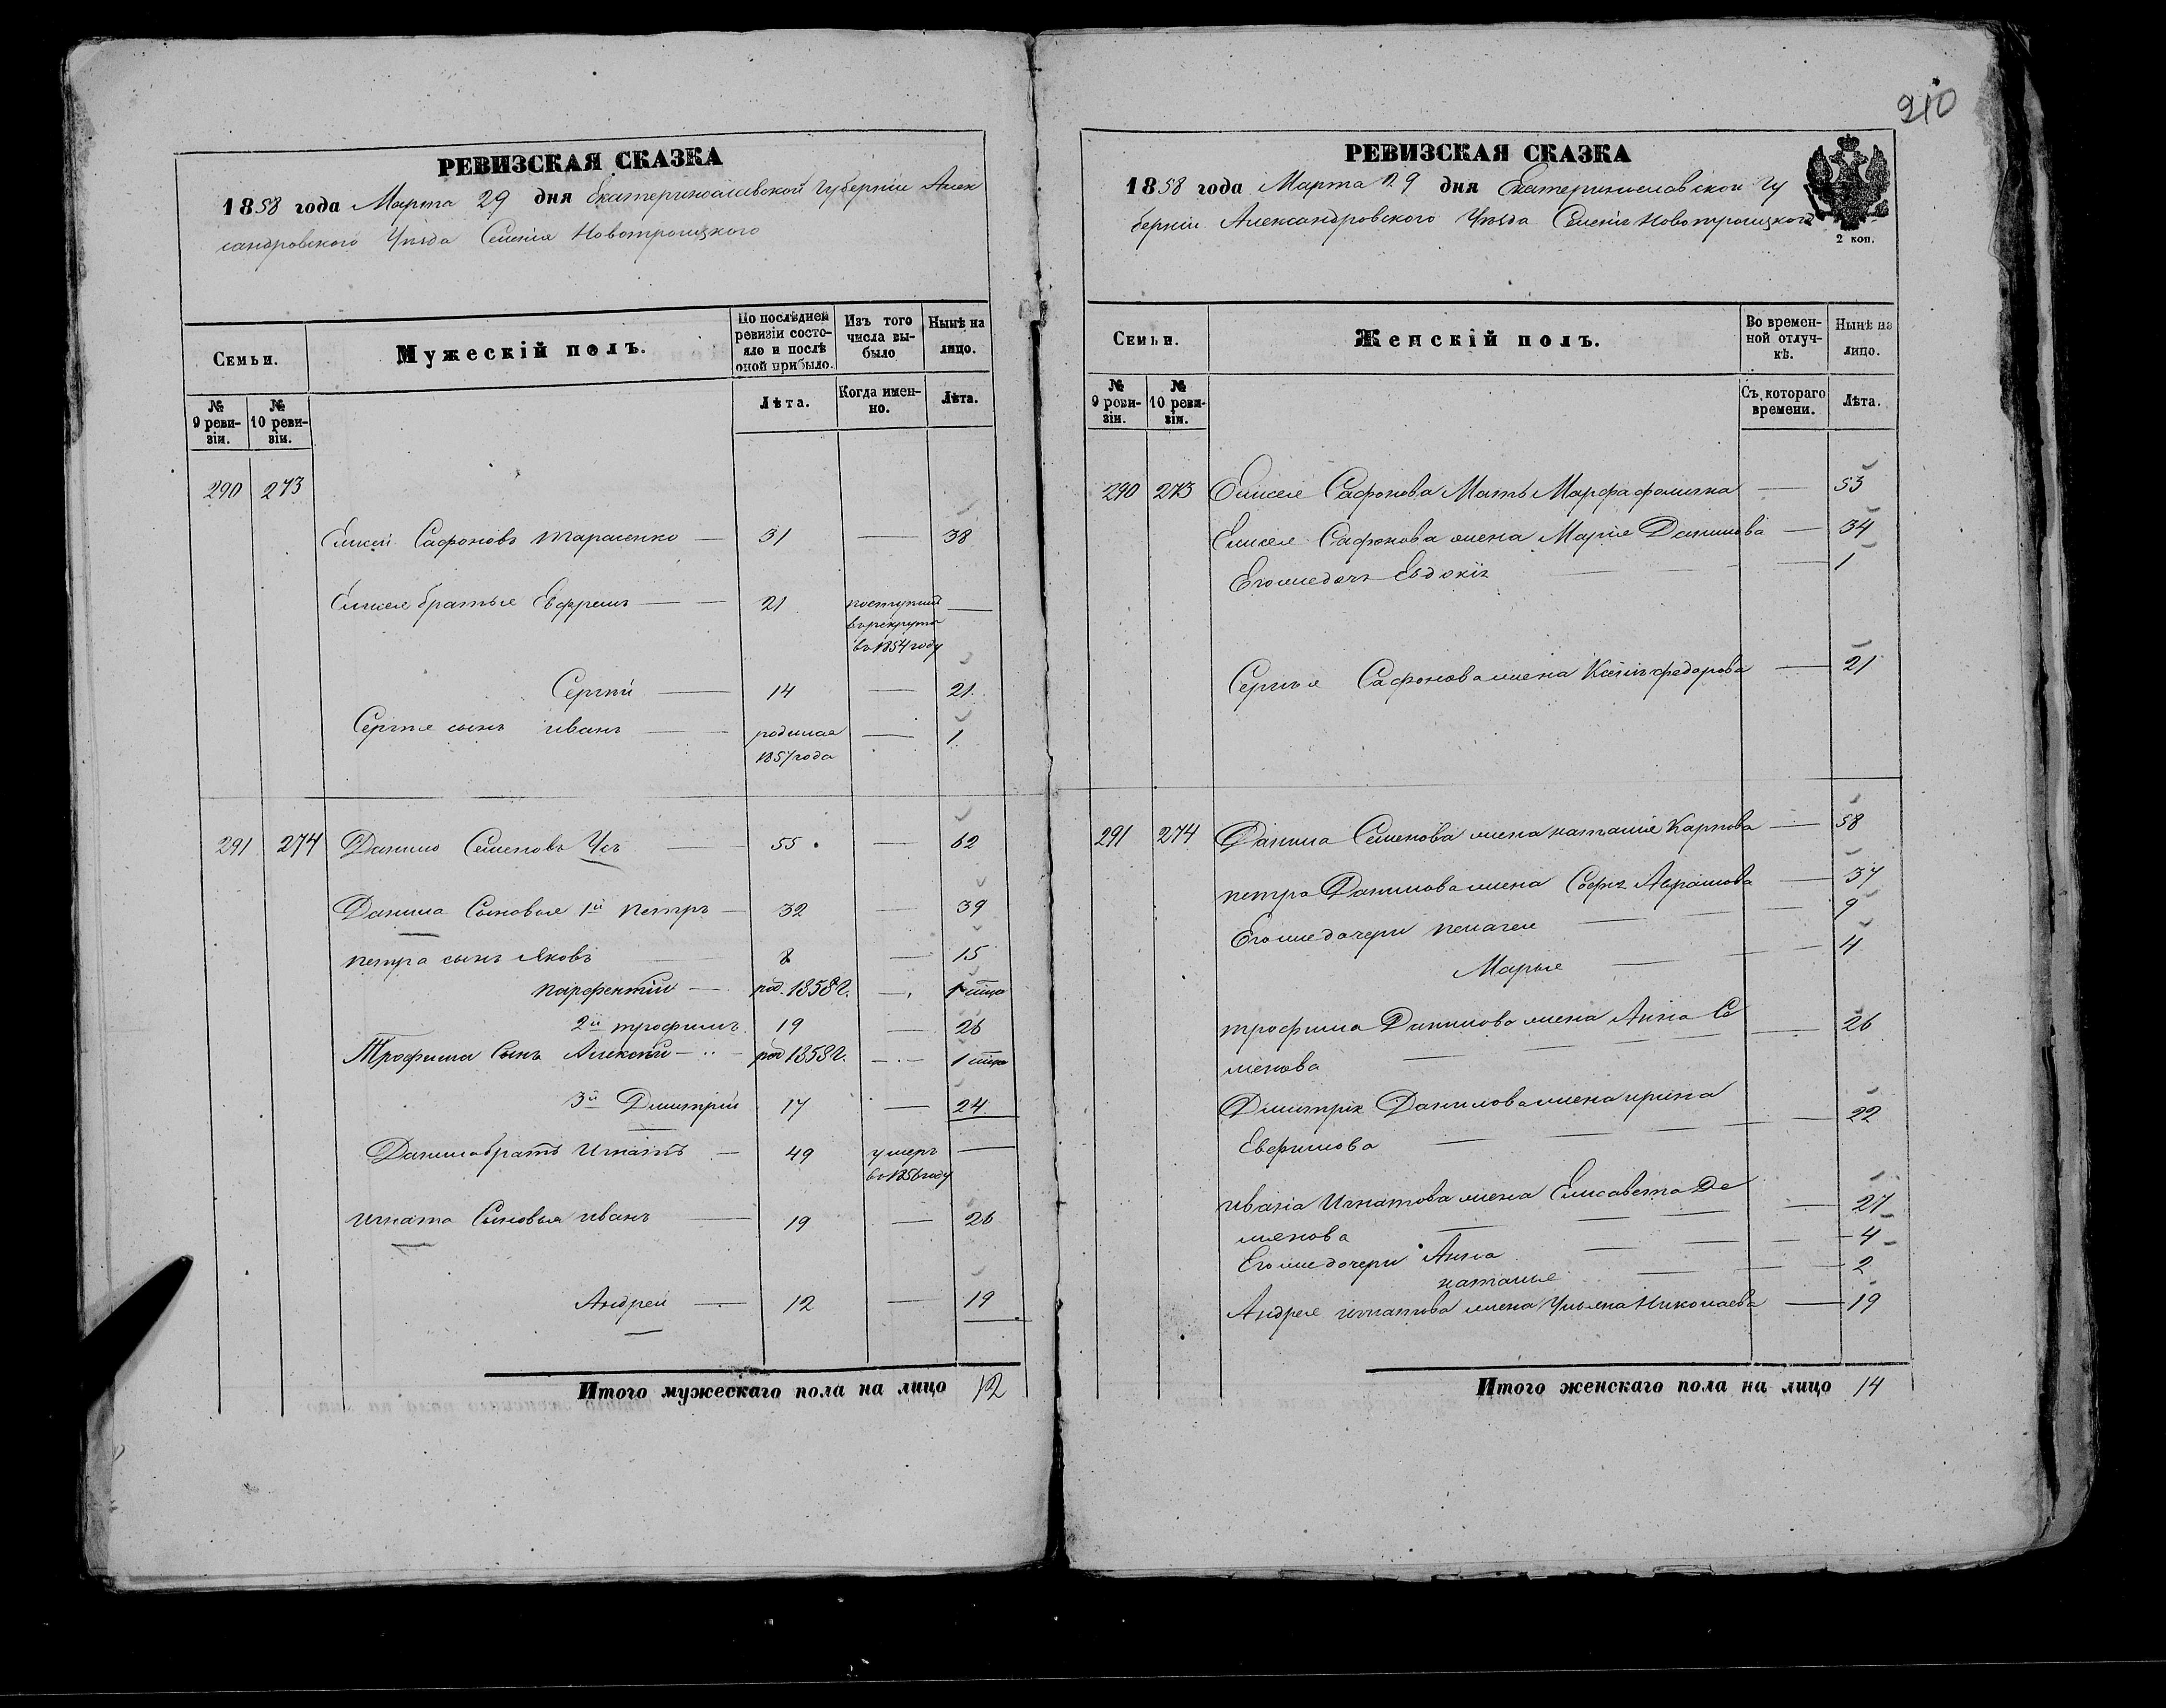 210
РЕВИЗСКАЯ СКАЗКА
1858 года Марта 29 дня Екатеринославской Губерніи Алек
сандровского Уѣзда Селенія Новотроицкого
Семьи.
Мужескій полъ.
По послѣдней ревизіи состояло и послѣ оной прибыло.
Изъ того числа выбыло
Нынѣ на лицо.
№ 9 ревизіи.
№ 10 ревизіи.
Лѣта.
Когда именно.
Лѣта.
290 273
Елисей Сафоновъ Тарасенко — 31 — 38
Елисея братья Ефремъ — — 21 поступилъ —
в рекруты
въ 1854 году
Сергій — 14 — 21
Сергѣя сынъ иванъ — — родился — 1
1857 года
291 274 Данило Семеновъ Усъ — 55 — 62
Данила Сыновья 1й петръ — 32 — 39
петра сынъ Яковъ — 8 — 15
парфентій — род. 1858 г. — 1 мѣсца
2й трофимъ 19 — 26
Трофима Сынъ Алексѣй — род 1858 г. — 1 мѣсца
3й Дмитрій 17 — 24
Данила братъ Игнатъ — 49 умеръ —
въ 1856 году
игната Сыновья иванъ — 19 — 26
Андрей — 12 — 19
Итого мужескаго пола на лицо 12
РЕВИЗСКАЯ СКАЗКА
1858 года Марта 29 дня Екатеринославской Гу
берніи Александровского Уѣзда Селенія Новотроицкого
2 коп.
Семьи.
Женскій полъ.
Во временной отлучкѣ.
Нынѣ на лицо.
№ 9 ревизіи.
№ 10 ревизіи.
Съ котораго времени.
Лѣта.
290 273 Елисея Сафонова Мать Марфа фомична — 53
Елисея Сафонова жена Марія Данилова — 34
Его же дочь Евдокія — — 1
Сергѣя Сафонова жена Ксенія федорова — 21
291 274 Данила Семенова жена наталія Карпова — 58
петра Данилова жена Софія Аврамова — 37
Его же дочери пелагея — — 9
Марья — — 4
трофима Данилова жена Анна Се — 26
менова
Дмитрія Данилова жена ирина — 22
Евфимова
ивана Игнатова жена Елисавета Де — 27
менова
Его же дочери Анна — 4
наталья — 2
Андрея игнатова жена Ульяна Николаева — 19
Итого женскаго пола на лицо 14